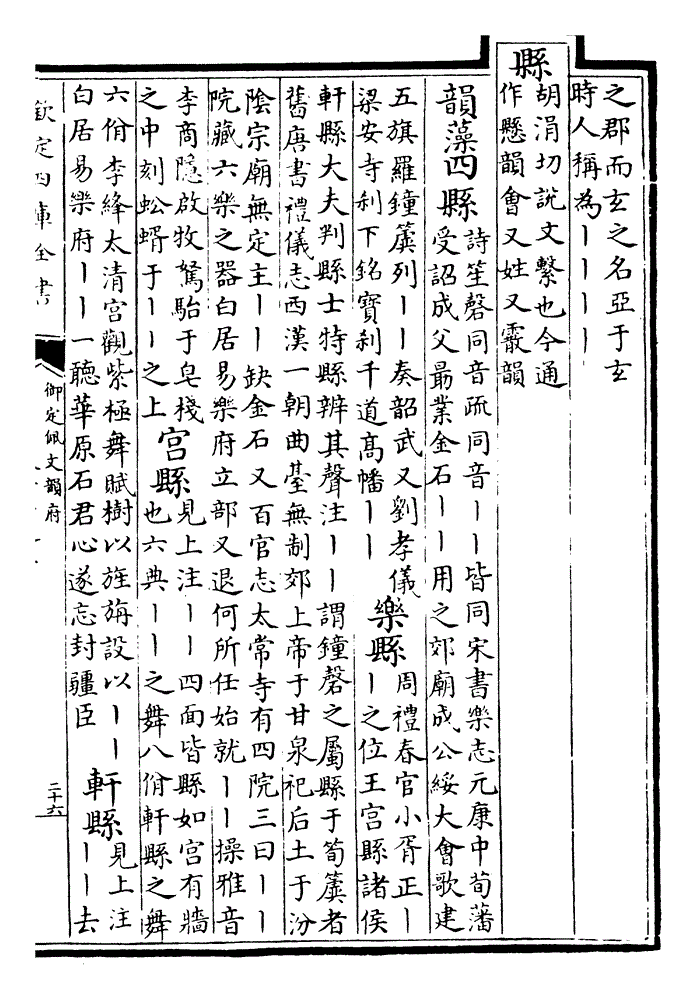 之郡而玄之名亞于玄
時人稱為丨丨丨丨
縣
胡涓切說文繫也今通
作懸韻會又姓又霰韻
韻藻四縣
詩笙磬同音疏同音丨丨皆同宋書樂志元康中荀藩
受詔成父最業金石丨丨用之郊廟成公綏大會歌建
五旗羅鐘簴列丨丨奏韶武又劉孝儀
梁安寺刹下銘寶刹千道高幡丨丨
樂縣
周禮春官小胥正丨
丨之位王宫縣諸侯
軒縣大夫判縣士特縣辨其聲注丨丨謂鐘磬之屬縣于筍簴者
舊唐書禮儀志西漢一朝曲臺無制郊上帝于甘泉祀后土于汾
陰宗廟無定主丨丨缺金石又百官志太常寺有四院三曰丨丨
院藏六樂之器白居易樂府立部又退何所任始就丨丨操雅音
李商隱啟牧駑駘于皂棧
之中刻蚣蝑于丨丨之上
宫縣
見上注丨丨四面皆縣如宫有牆
也六典丨丨之舞八佾軒縣之舞
六佾李絳太清宫觀紫極舞賦樹以旌旃設以丨丨
白居易樂府丨丨一聽華原石君心遂忘封疆臣
軒縣
見上注
丨丨去
欽定四庫全書
御定佩文韻府
二十六